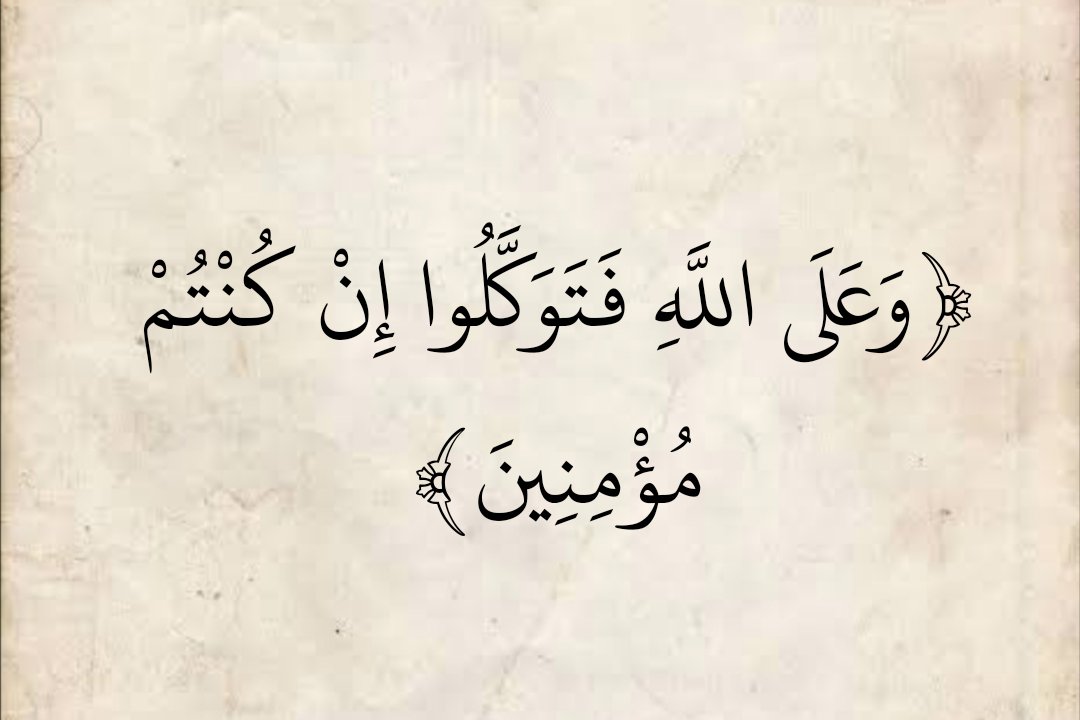 ﴿وَعَلَى اللَّهِ فَتَوَكَّلُوا إِنْ كُنْتُمْ
مُؤْمِنِينَ﴾